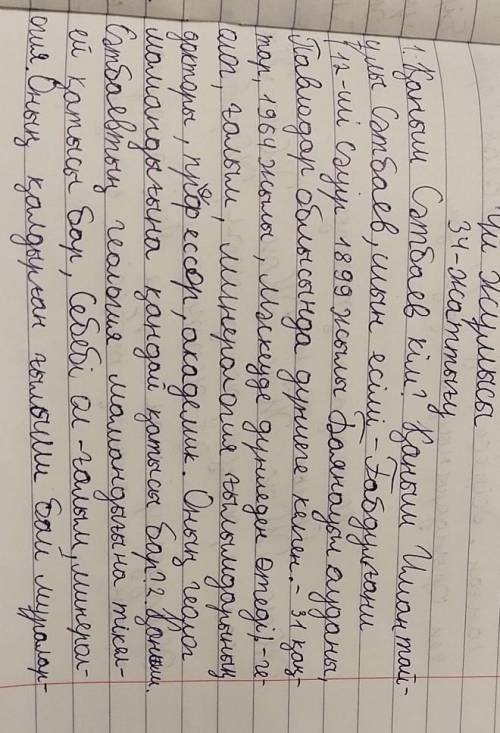 Үй жұмысы
34-жаттығу
1. Қаныш Сәтбаев кім? Қаныш Имантай-
ұлы Сәтбаев, шын есімі - Ғабдулғани
(12-ші сәуір 1899 жылы Баянауыл ауданы,
Павлодар облысында дүниеге келген. - 31 қаң-
тар, 1964 жылы, Мәскеуде дүниеден өтеді) - ге-
олог, ғалым, минерология ғылымдарының
докторы, профессор, академик. Оның геолог
мамандығына қандай қатысы бар? 2. Қаныш
Сәтбаевтың геология мамандығына тікел-
ей қатысы бар, Себебі ол - ғалым, минерал-
огия. Оның қалдырған ғылыми бай мұралар-